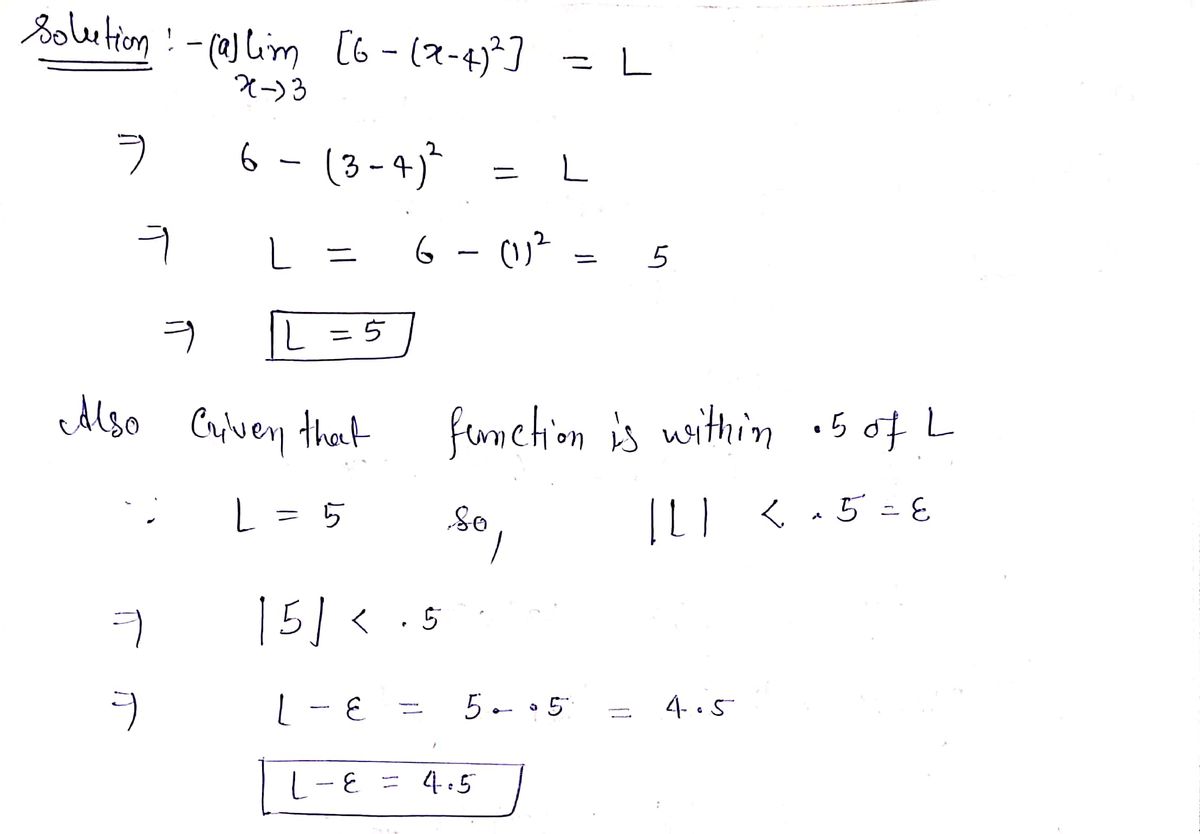 Solution :- (a) lim [6 - (x-4)²] = L
x→3
⇒ 6 - (3-4)² = L
⇒ L = 6 - (1)² = 5
⇒ L = 5
Also Given that function is within .5 of L
∵ L = 5 so, |L| < .5 = ε
⇒ |5| < .5
⇒ L - ε = 5 - .5 = 4.5
L - ε = 4.5